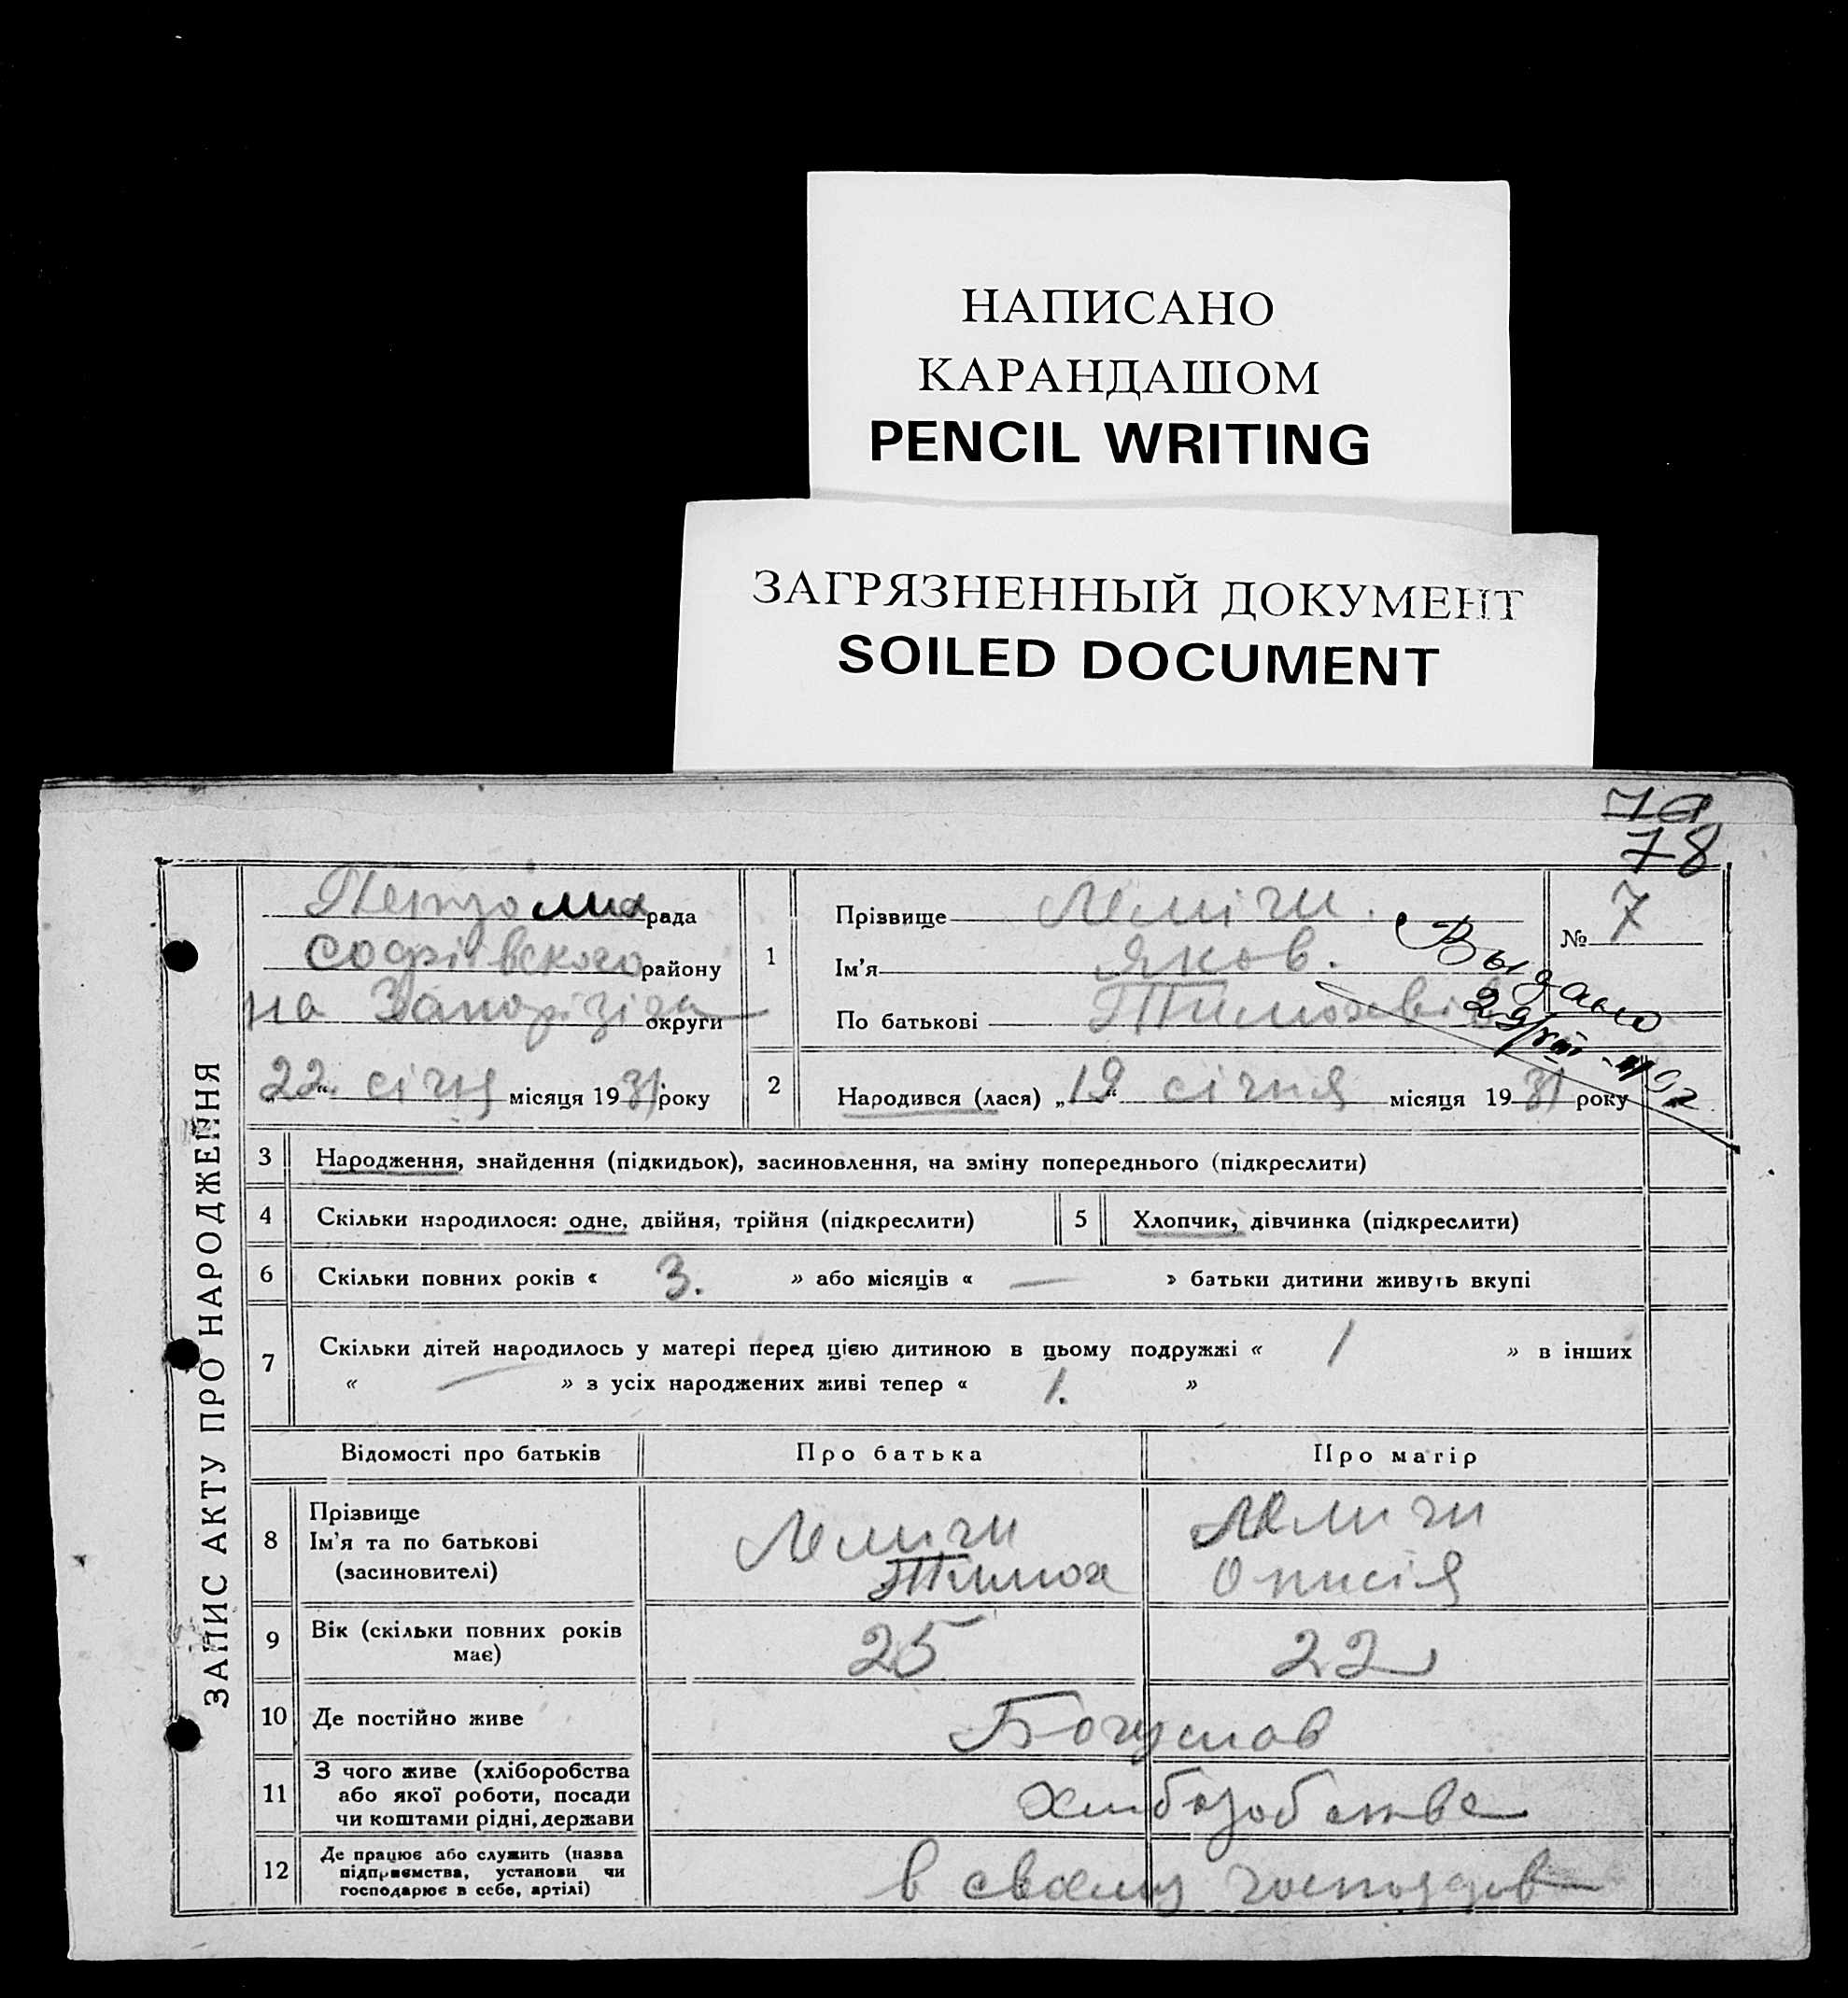 НАПИСАНО
КАРАНДАШОМ
PENCIL WRITING
ЗАГРЯЗНЕННЫЙ ДОКУМЕНТ
SOILED DOCUMENT
78
ЗАПИС АКТУ ПРО НАРОДЖЕННЯ
рада
Софіївского району
на Запоріжі округи
„22“ січня місяця 1931 року
1
Прізвище
Ім'я Яков.
По батькові
№ 7
Выдано
2
Народився (лася) „19“ січня місяця 1931 року
3 Народження, знайдення (підкидьок), засиновлення, на зміну попереднього (підкреслити)
4 Скільки народилося: одне, двійня, трійня (підкреслити)
5 Хлопчик, дівчинка (підкреслити)
6 Скільки повних років « 3. » або місяців « — » батьки дитини живуть вкупі
7 Скільки дітей народилось у матері перед цією дитиною в цьому подружжі « 1 » в інших
« — » з усіх народжених живі тепер « 1. »
Відомості про батьків Про батька Про матір
8 Прізвище
Ім'я та по батькові
(засновителі)
Тимох
9 Вік (скільки повних років
має)
25 22
10 Де постійно живе Богуслав
11 З чого живе (хліборобства
або якої роботи, посади
чи коштами рідні, держави
12 Де працює або служить (назва
підприємства, установи чи
господарює в себе, артілі)
в своему